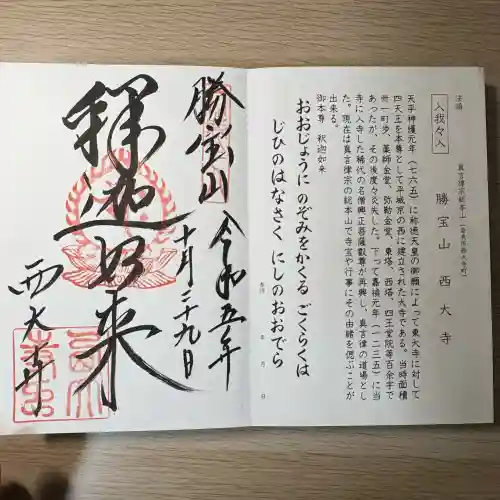 法語
入我々入
真言律宗総本山(奈良県西大寺町)
勝宝山 西大寺
天平神護元年(七六五)に称徳天皇の御願によって東大寺に対して
四天王を本尊として平城京の西に建立された大寺である。当時面積
卅一町歩、薬師金堂、弥勒金堂、東塔、西塔、四王堂院等百余宇で
あったが、その後度々炎失した。下って嘉禎元年(一二三五)に当
寺に入寺した稀代の名僧興正菩薩叡尊が再興し、真言律の道場とし
た。現在は真言律宗の総本山で寺宝や行事にその由緒を偲ぶことが
出来る。
御本尊 釈迦如来
おおじょうに のぞみをかくる ごくらくは
じひのはなさく にしのおおでら
年 月 日
勝宝山
令和五年
十月二十九日
釋迦如来
西大寺